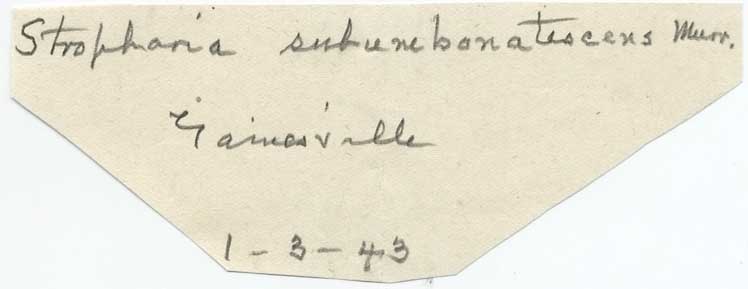 Stropharia subumbonatescens Murr.
Gainesville
1-3-43